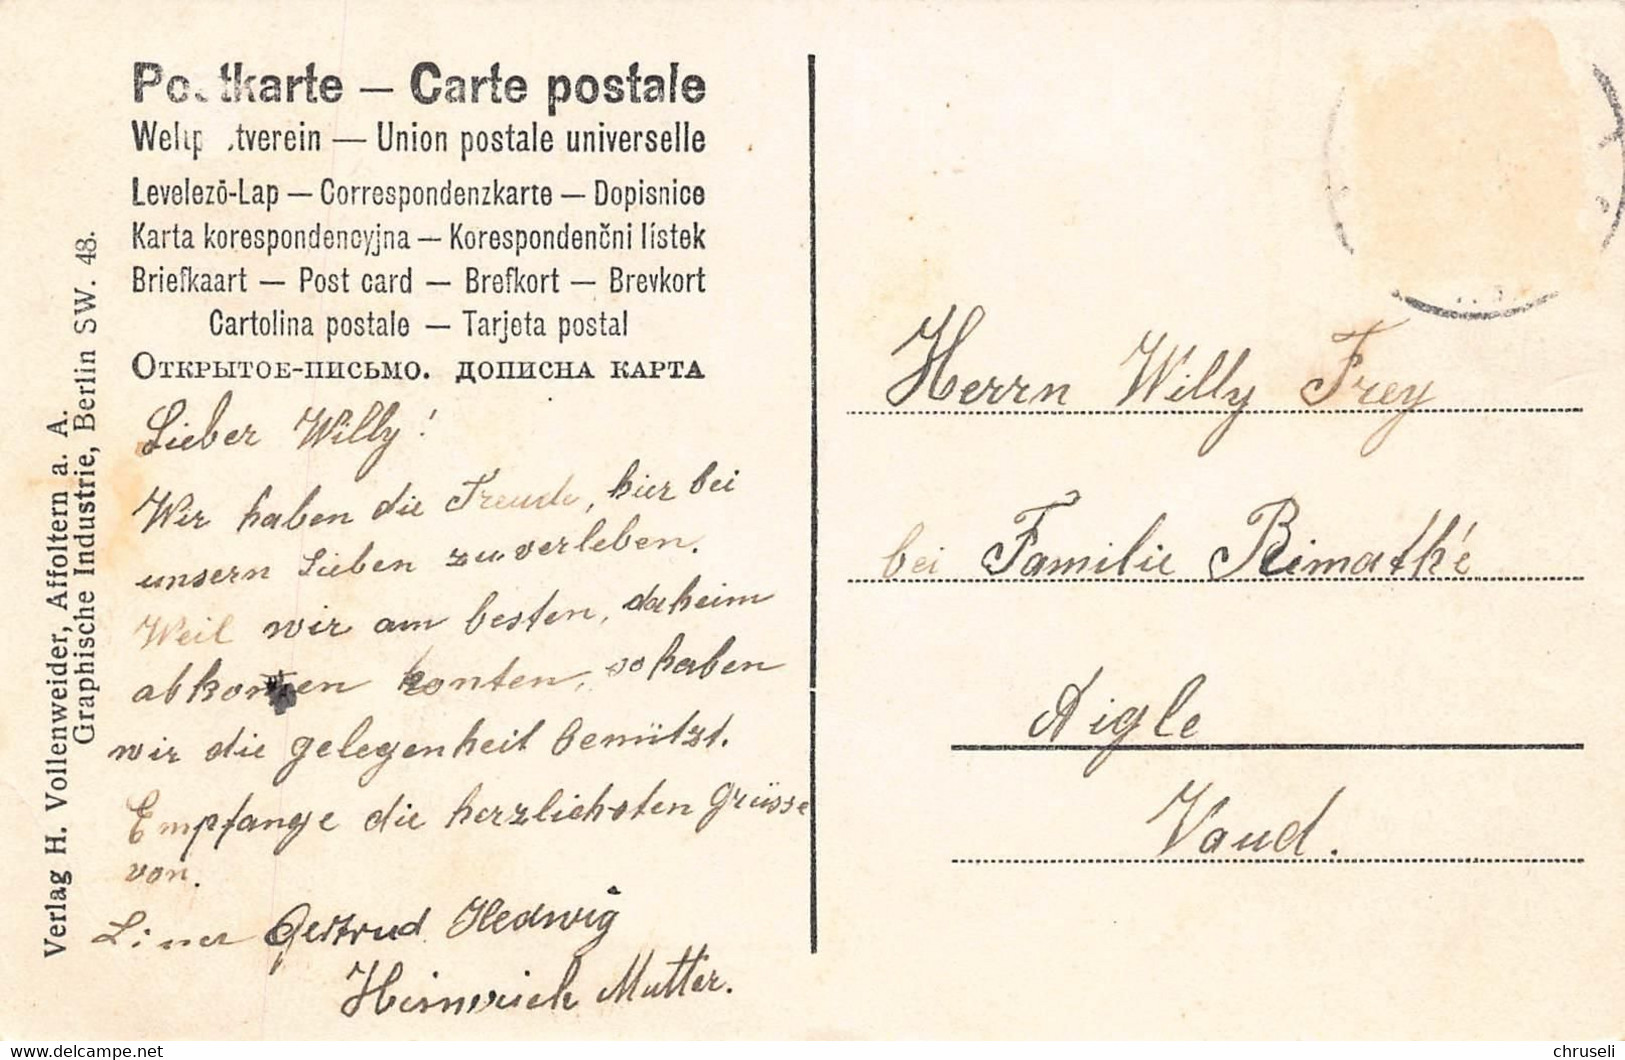 Postkarte — Carte postale
Weltpostverein — Union postale universelle
Levelezö-Lap — Correspondenzkarte — Dopisnice
Karta korespondencyjna — Korespondenční lístek
Briefkaart — Post card — Brefkort — Brevkort
Cartolina postale — Tarjeta postal
Открытое-письмо. дописна карта
Verlag H. Vollenweider, Affoltern a. A.
Graphische Industrie, Berlin SW. 48.
Lieber Willy!
Wir haben die Freude, hier bei
unsern Lieben zu verleben.
Weil wir am besten, daheim
abkomen konten, so haben
wir die gelegenheit benützt.
Empfange die herzlichsten Grüsse
von.
Gertrud Hedwig
Heinrich Mutter.
Herrn Willy Frey
bei Familie Rimathé
Aigle
Vaud.
chruseli